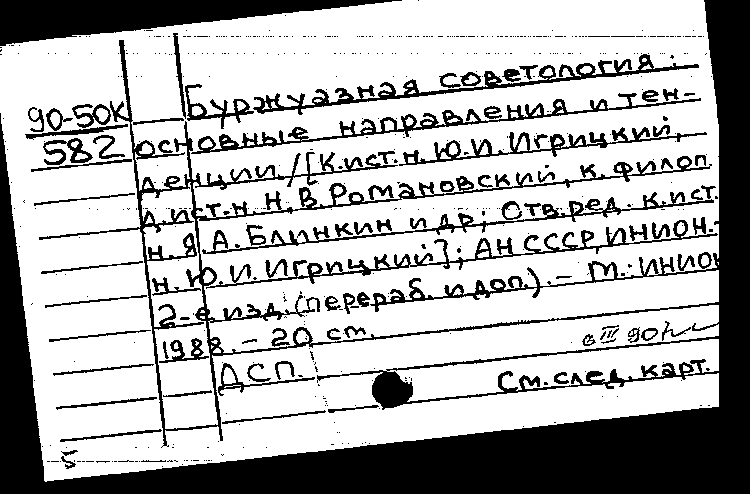 90-50К
582
Буржуазная советология:
основные направления и тен-
денции /[К.ист.н. Ю.И. Игрицкий,
д.ист.н. Н.В. Романовский, к. филол.
н. Я.А. Блинкин и др; Отв.ред. к.ист.
н. Ю.И. Игрицкий]; АН СССР, ИНИОН.-
2-е изд. (перераб. и доп.). - М.: ИНИОН
1988. - 20 см.
ДСП.
III 90
См. след. карт.
5